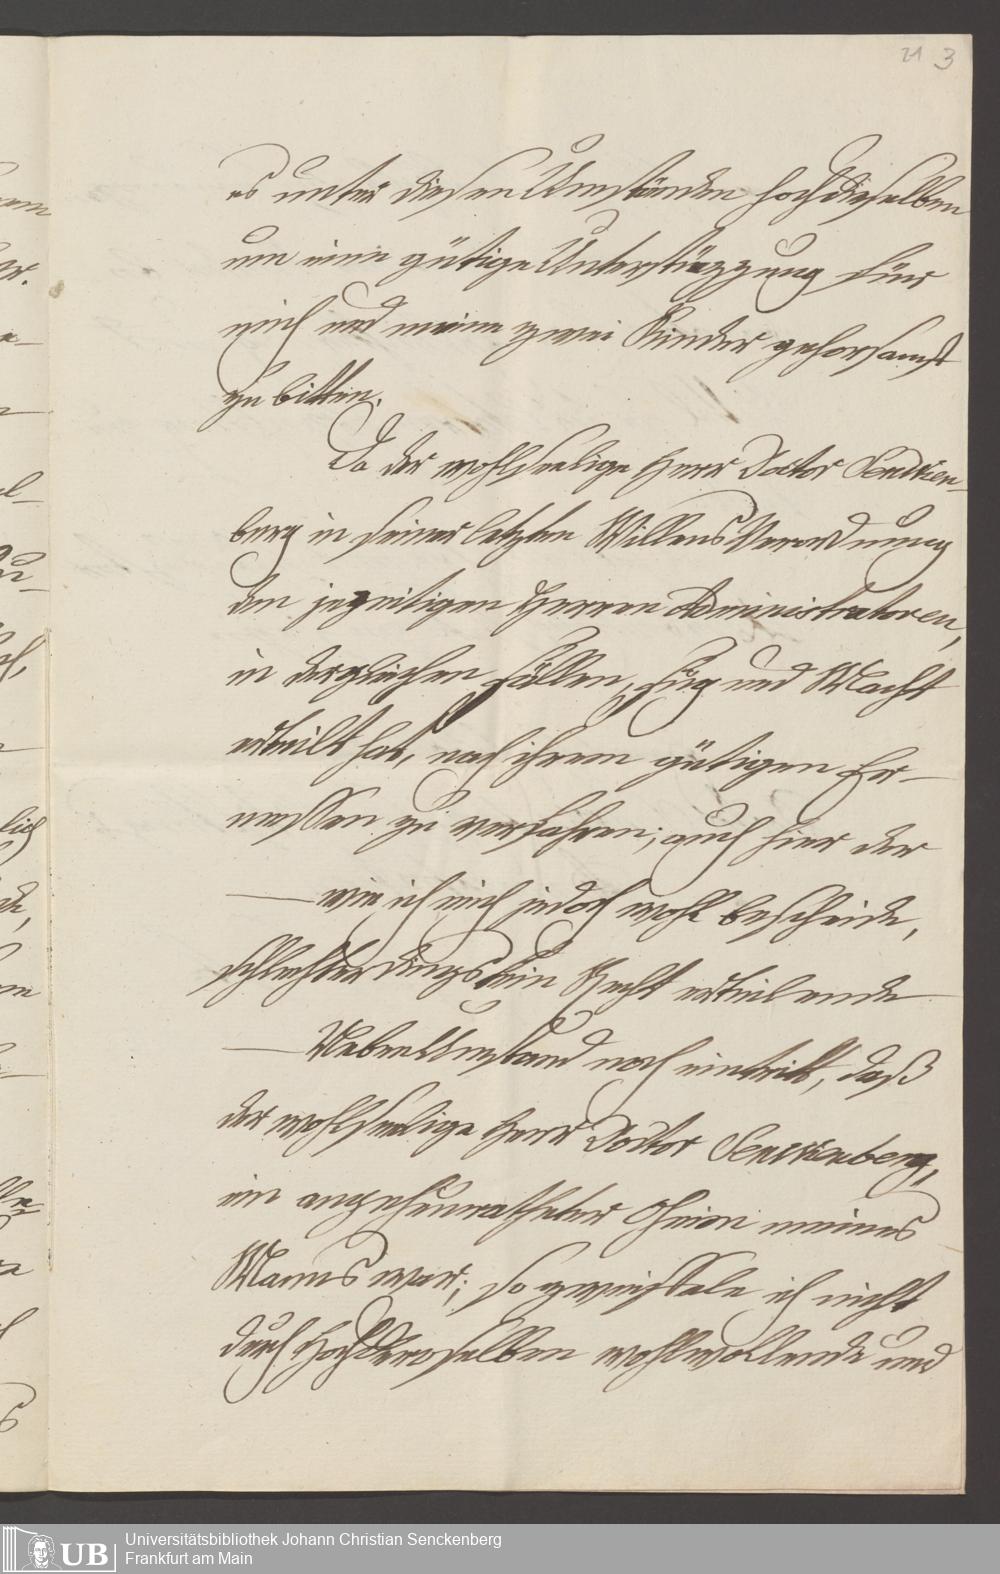 21 3
es unter diesen Umständen Hochdieselben
um eine gütige Unterstüzzung für
mich und meine zwei Kinder gehorsamst
zu bitten.
Da der wohlseelige Herr Doctor Sencken-
berg in seiner letzten Willens Verordnung
den jezeitigen Herren Administratoren,
in dergleichen Fällen, Fug und Macht
ertheilt hat, nach ihrem gütigen Er-
messen zu verfahren; auch hier der
— wie ich mich jedoch wohl bescheide,
schlechterdings kein Recht ertheilende
— Neben Umstand noch eintritt, daß
der wohlseelige Herr Doctor Senckenberg,
ein angeheuratheter Oheim meines
Manns war; so zweiffele ich nicht
durch Hochderoselben wohlwollende und
UB
Universitätsbibliothek Johann Christian Senckenberg
Frankfurt am Main